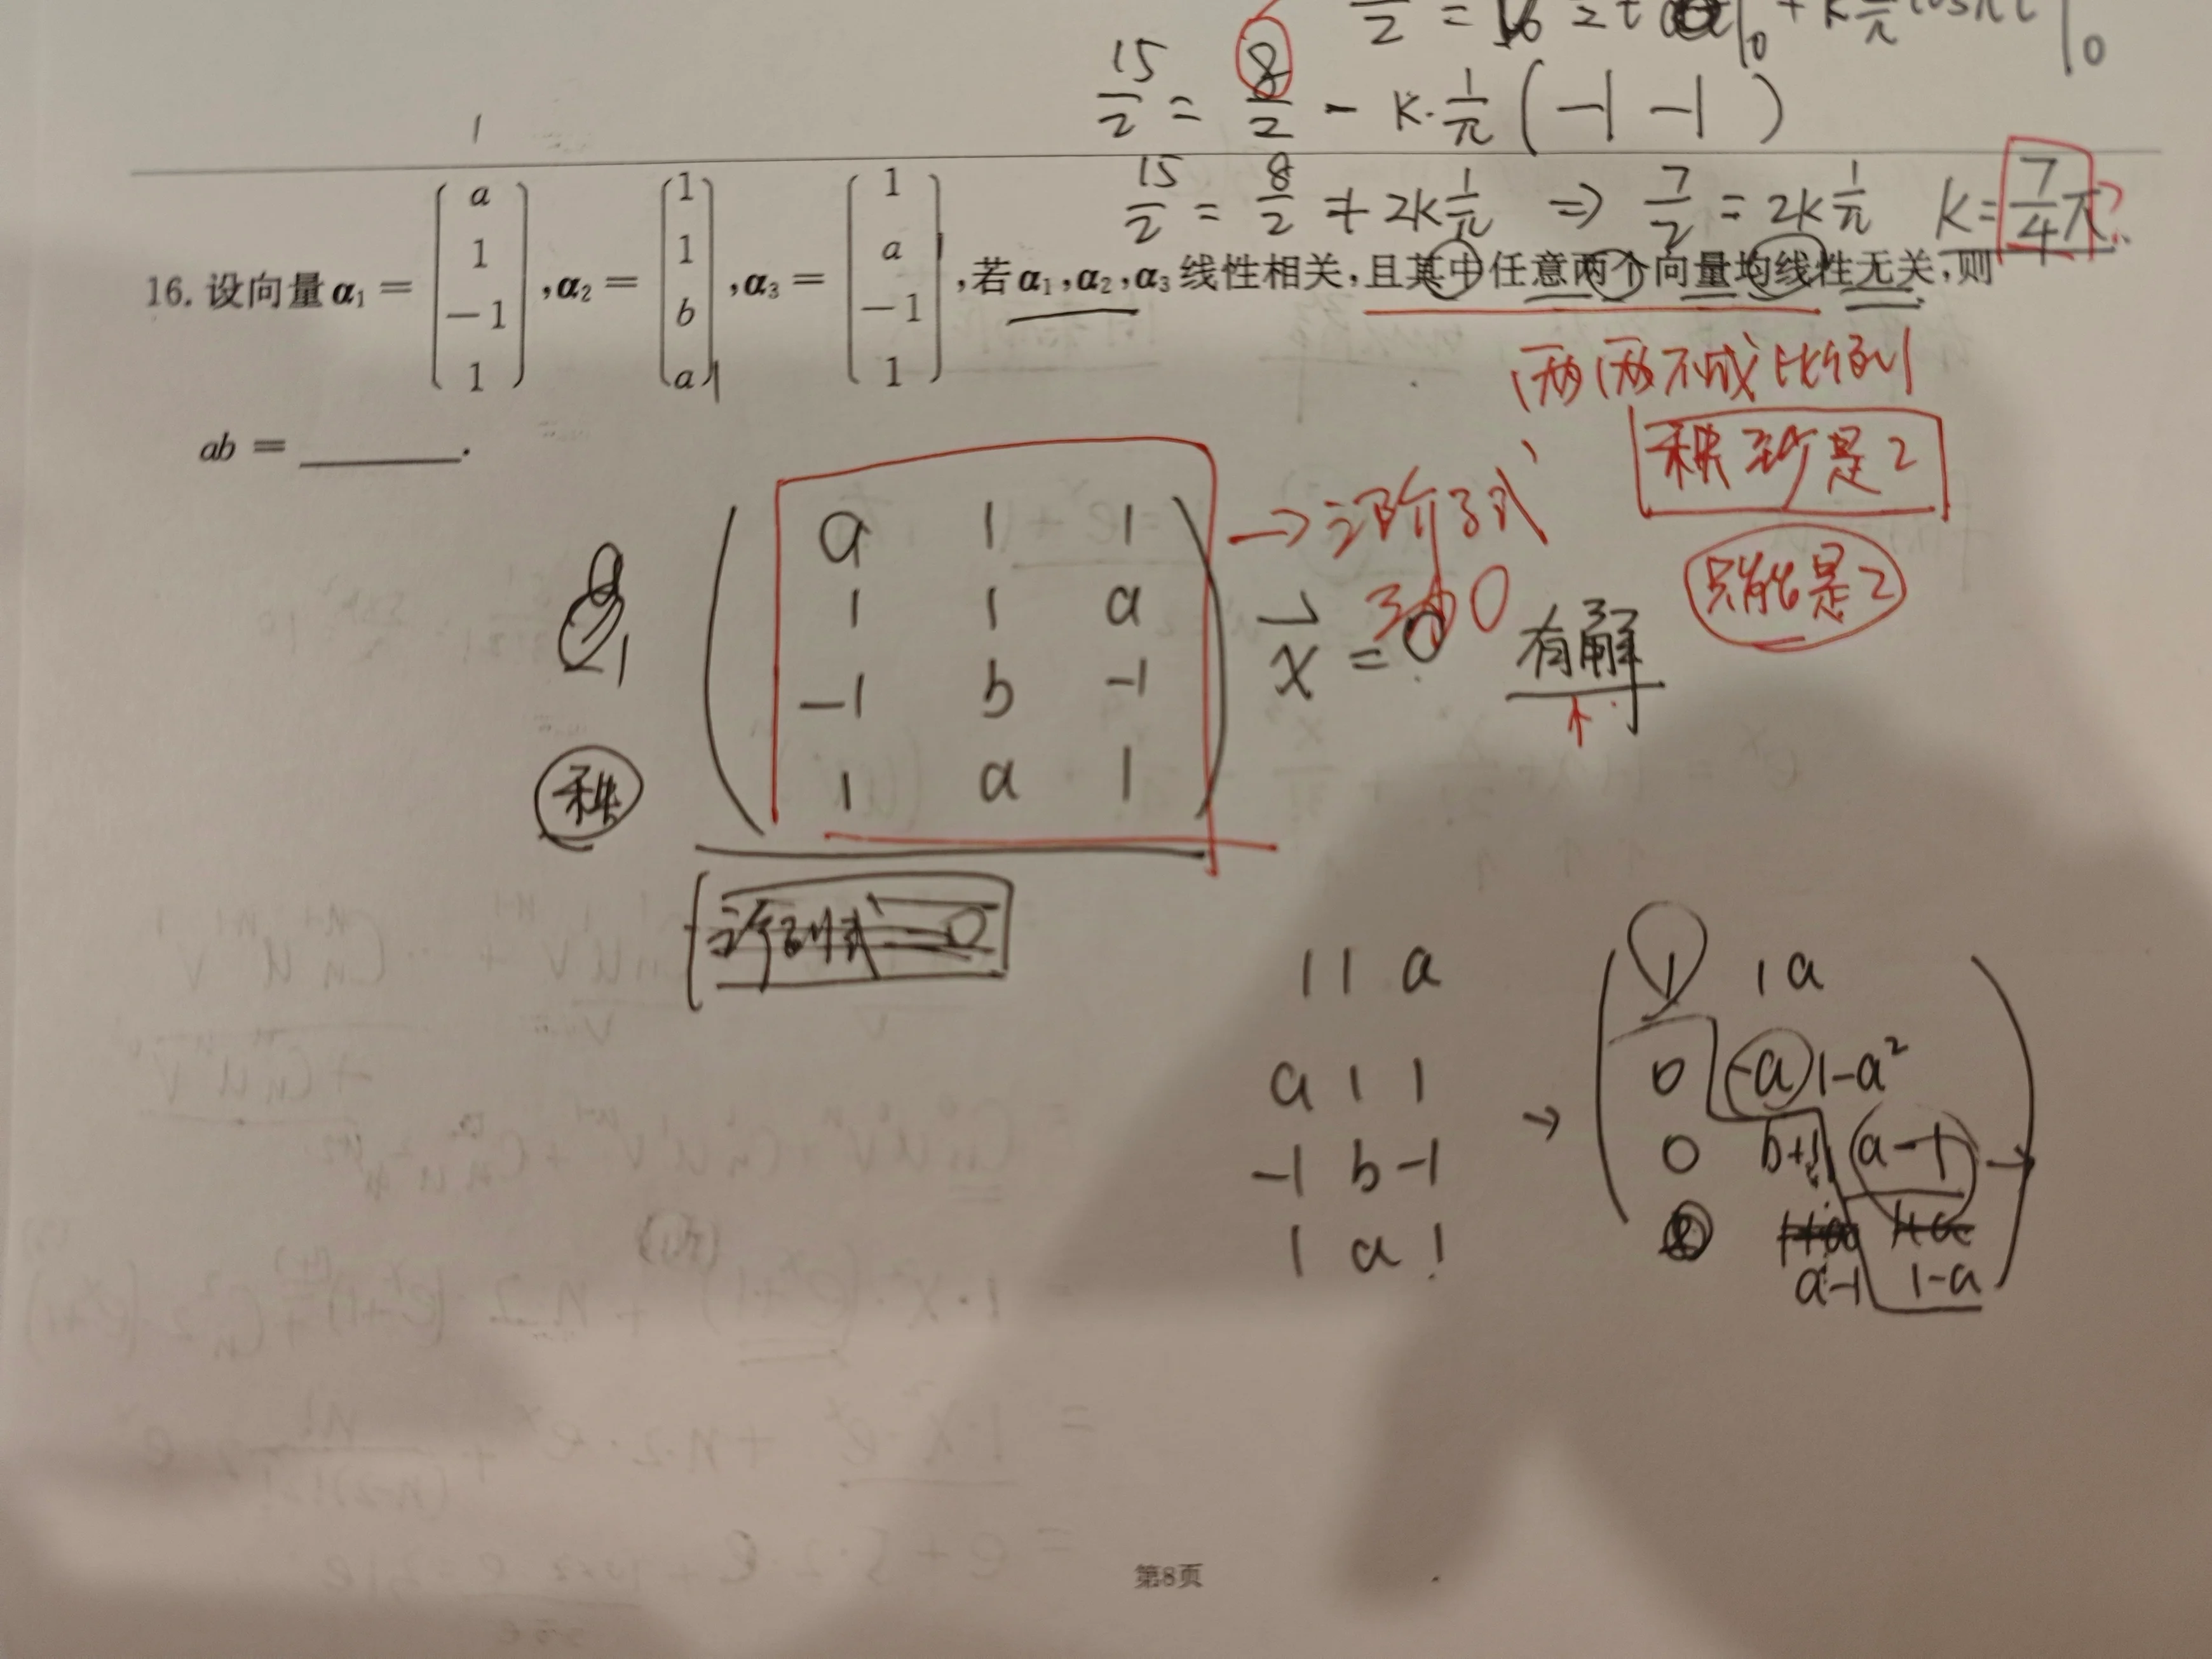 15/2 = 8/2 - k·1/π (-1 -1)
15/2 = 8/2 + 2k 1/π ⇒ 7/2 = 2k 1/π k = 7/4 π ?
16. 设向量α₁ = (a, 1, -1, 1), α₂ = (1, 1, b, a), α₃ = (1, a, -1, 1), 若α₁,α₂,α₃线性相关,且其中任意两个向量均线性无关,则
ab = ______.
两两不成比例
秩至少是2
只能是2
a 1 1
1 1 a
-1 b -1
1 a 1
→ 三阶子式
x = 0 有解
秩
1 1 a
a 1 1
-1 b -1
1 a 1
→
1 1 a
0 -a 1-a²
0 b+1 a-1
a-1 1-a
→
第8页